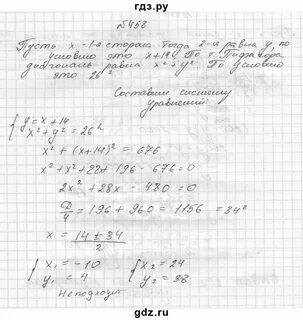 № 458
Пусть x - 1-я сторона тогда 2-я равна y, по
условию это x+14. По т. Пифагора
диагональ равна x² + y². По условию
это 26²
Составим систему
уравнений
{ y = x + 14
x² + y² = 26²
x² + (x+14)² = 676
x² + x² + 28x + 196 - 676 = 0
2x² + 28x - 480 = 0
D/4 = 196 + 960 = 1156 = 34²
x = 14 ± 34 / 2
{ x₁ = -10 { x₂ = 24
y₁ = 4 y₂ = 38
Не подходит
gdz.ru